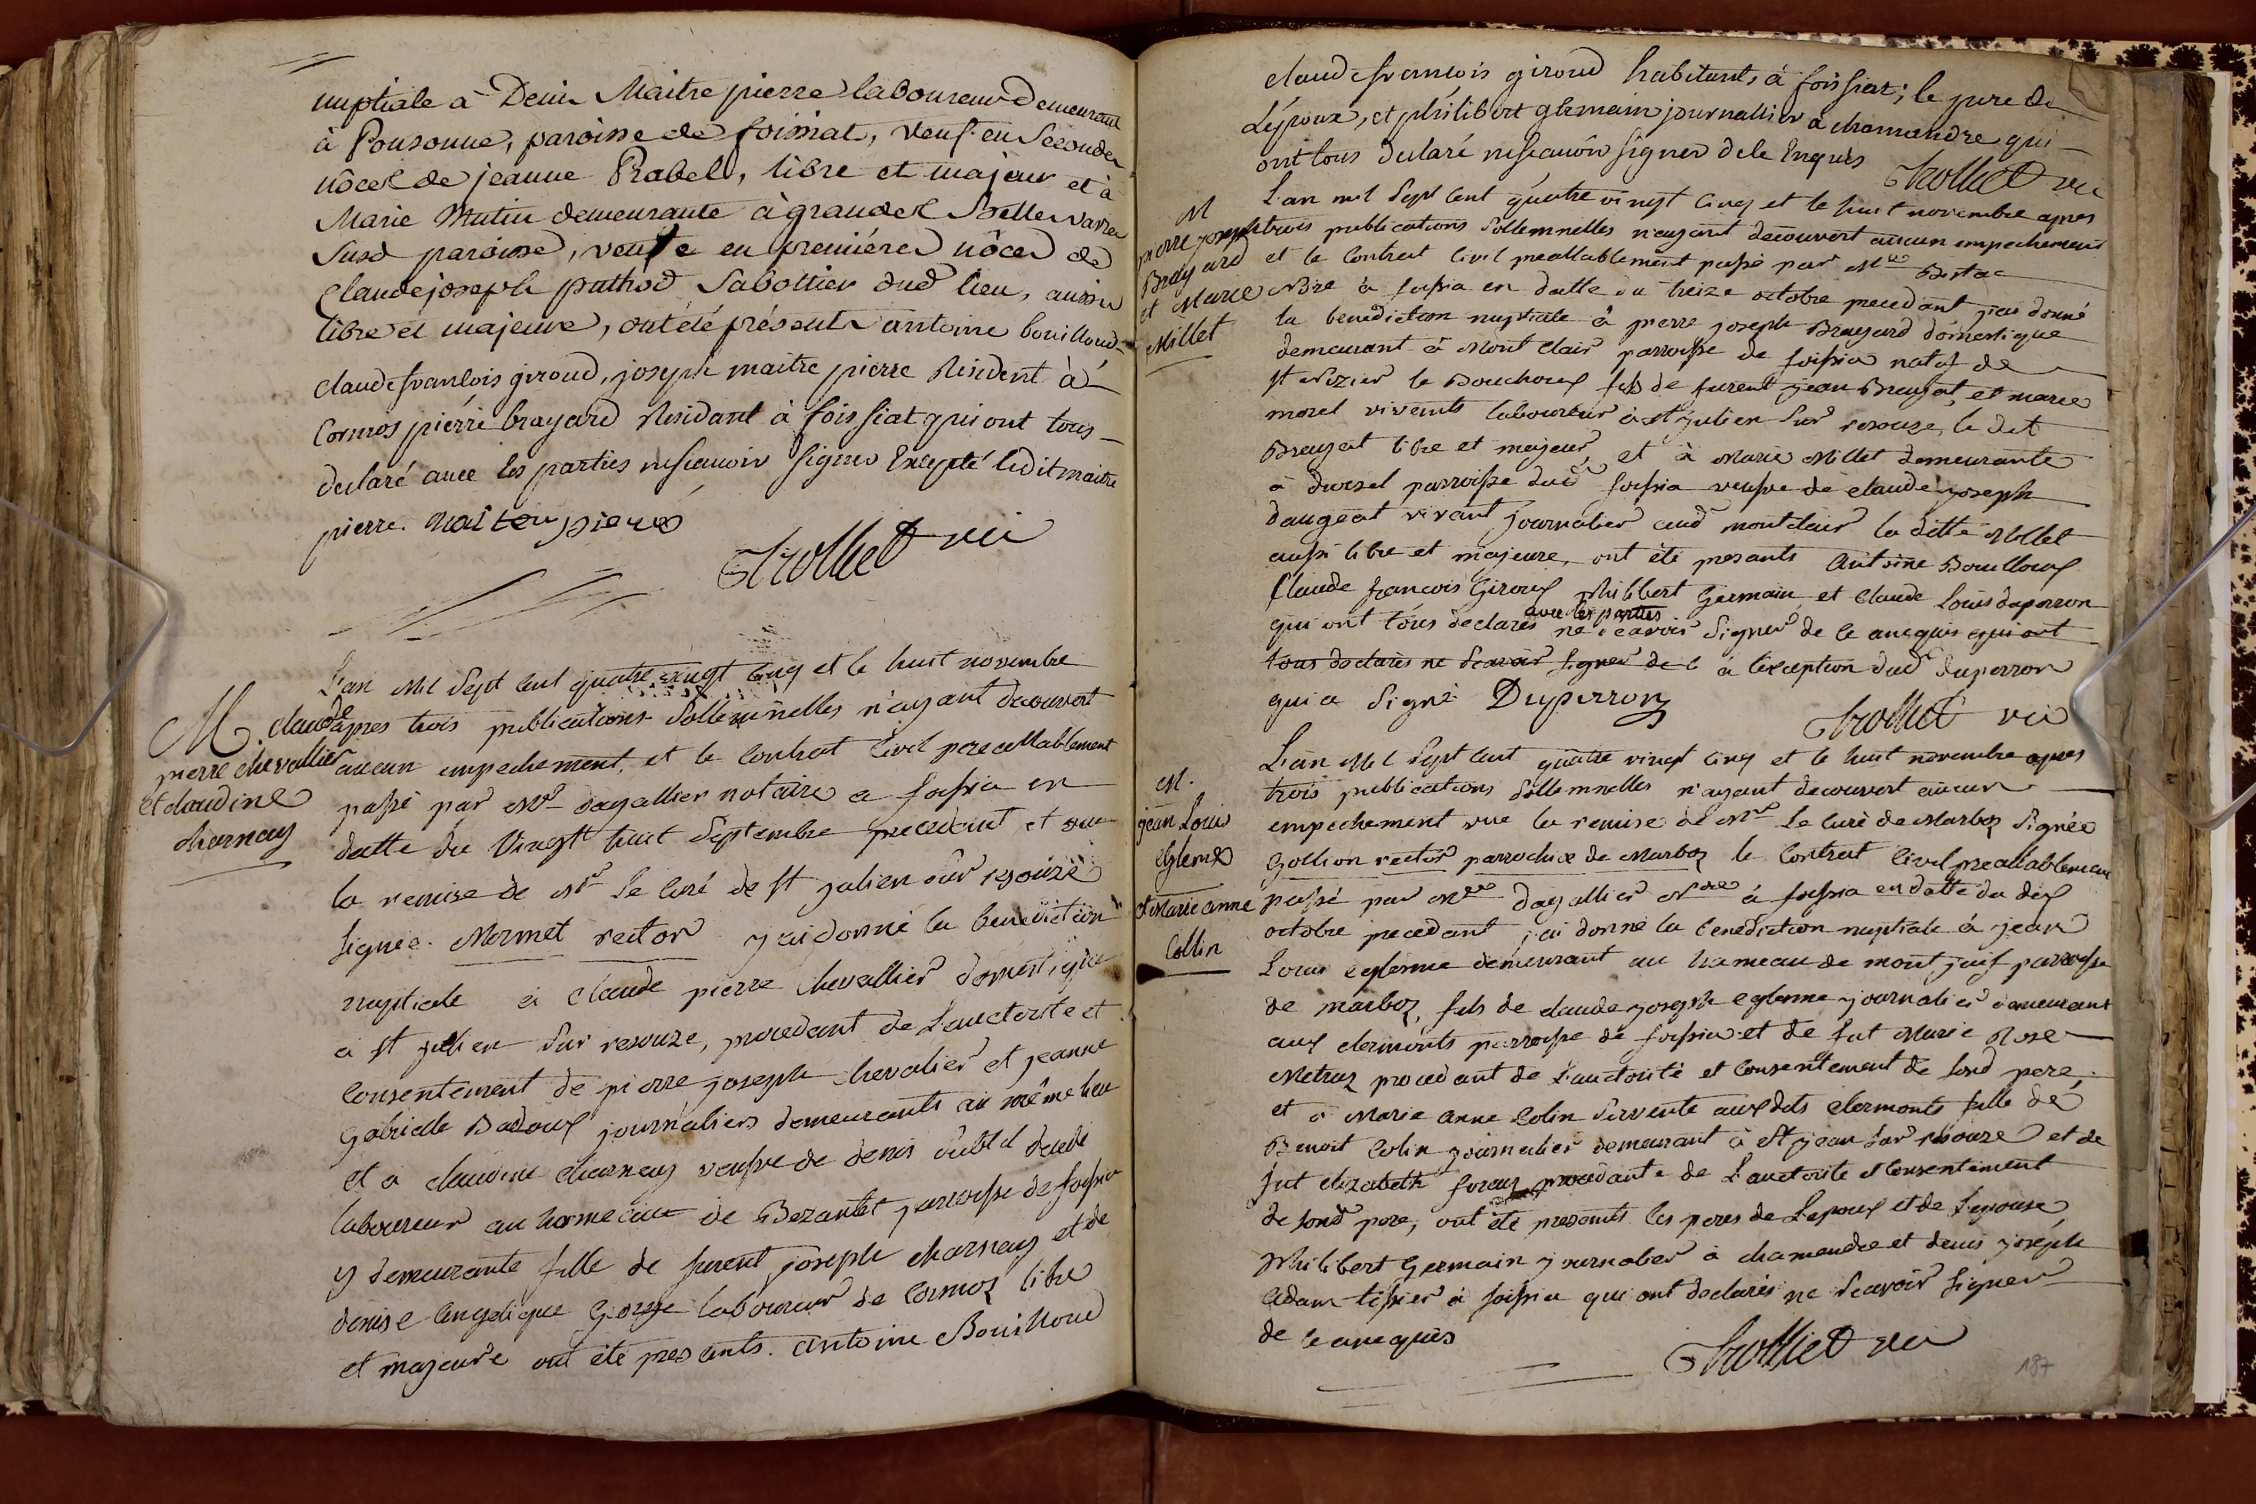 nuptiale à Denis Maitre pierre laboureur demeurant
à Ponsonne, paroisse de foissiat, veuf en Secondes
nôces de jeanne Rabel, libre et majeur et à
Marie Mutin demeurante à grandes Selle varres
Susd paroisse, veufe en premiéres nôces de
Claude joseph pathod Sabottier dud lieu, aussi
libre et majeure, ont été présents antoine bouilloud
claude francois giroud, joseph maitre pierre Résident à
Cormos pierre brayard Résidant à foissiat qui ont tous
declaré avec les parties ne scauoir signer Excepté ledit maitre
pierre. maiten pierre
Trolliet vic
M claude
pierre chevallier
et claudine
charnay
L'an Mil Sept Cent quatre vingt cinq et le huit novembre
apres trois publications Sollemnelles n'ayant decouvert
aucun empechement, et le Contrat Civil preallablement
passé par Mr dagallier notaire a foissia en
datte du vingt huit Septembre precedent et vue
la remise de Mr le curé de st julien sur resouze
signée. Mermet rector j'ai donné la benediction
nuptiale à Claude pierre chevallier domestique
à st julien sur resouze, procedant de L'auctorité et
Consentement de pierre joseph chevalier et jeanne
Gabrielle Badoux journaliers demeurants au même lieu
et a claudine charnay veufve de denis decedé
laboureur au hameau de Bezantet parroisse de foissia
y demeurante fille de furent joseph charnay et de
denise angelique George laboureur de Cormoz libre
et majeure ont été presents. antoine Bouilloud
claude francois giroud habitants à foissiat; le pere de
L'époux, et philibert glemain journallier à chamandre qui
ont tous declaré ne scauoir signer de le Enquis
Trolliet vic
M
pierre joseph
Brayard
et Marie
Millet
L'an mil Sept Cent quatre vingt Cinq et le huit novembre apres
trois publications Sollemnelles n'ayant decouvert aucun empechement
et le Contrat Civil preallablement passé par Mre
Nore à foissia en datte du treize octobre precedant j'ai donné
la benediction nuptiale à pierre joseph Brayard domestique
demeurant à Mont Clair parroisse de foissia natif de
st le Bouchoux fils de furent jean Brayat et marie
morel vivants laboureur à st julien sur resouze, le dit
Brayat libre et majeur, et à Marie Millet demeurante
à parroisse dud foissia veufve de claude joseph
daugeat vivant journalier aud montclair la ditte Millet
aussi libre et majeure, ont été presants Antoine Bouilloux
Claude francois Giroux Philibert Germain et Claude Louis duperron
avec les parties
qui ont tous declarés ne scavoir signer de ce anequis qui ont
tous declarés ne Scavoir signer de c à l'exception dud duperron
qui a Signé Duperron
Trolliet vic
M.
jean Louis
Eglenne
et Marie anne
Collin
L'an Mil Sept Cent quatre vingt Cinq et le huit novembre apres
trois publications Sollemnelles n'ayant decouvert aucun
empechement vue la remise de Mr le curé de Marboz Signée
Gollion rector parrochiæ de Marboz le Contrat Civil preallablement
passé par Mre dagallier Nore à foissia en datte du dix
octobre precedant j'ai donné la benediction nuptiale à jean
Louis eglenne demeurant au hameau de mont juif parroisse
de marboz, fils de claude joseph eglenne journalier demeurant
aux clermonts parroisse de foissia et de fut Marie Rose
Metraz procedant de L'auctorité et Consentement de sond pere,
et à Marie Anne Colin Servente auxdits clermonts fille de
Benoit Colin journalier demeurant à st jean sur resouze et de
fut elizabeth foray procedante de L'auctorité et Consentement
de sond pere, ont été presants les peres de Lepoux et de Lepouse,
Philibert Germain journalier à chamendre et denis joseph
Adam tissier à foissia qui ont declarés ne Scavoir Signer
de ce anequis
Trolliet vic
187